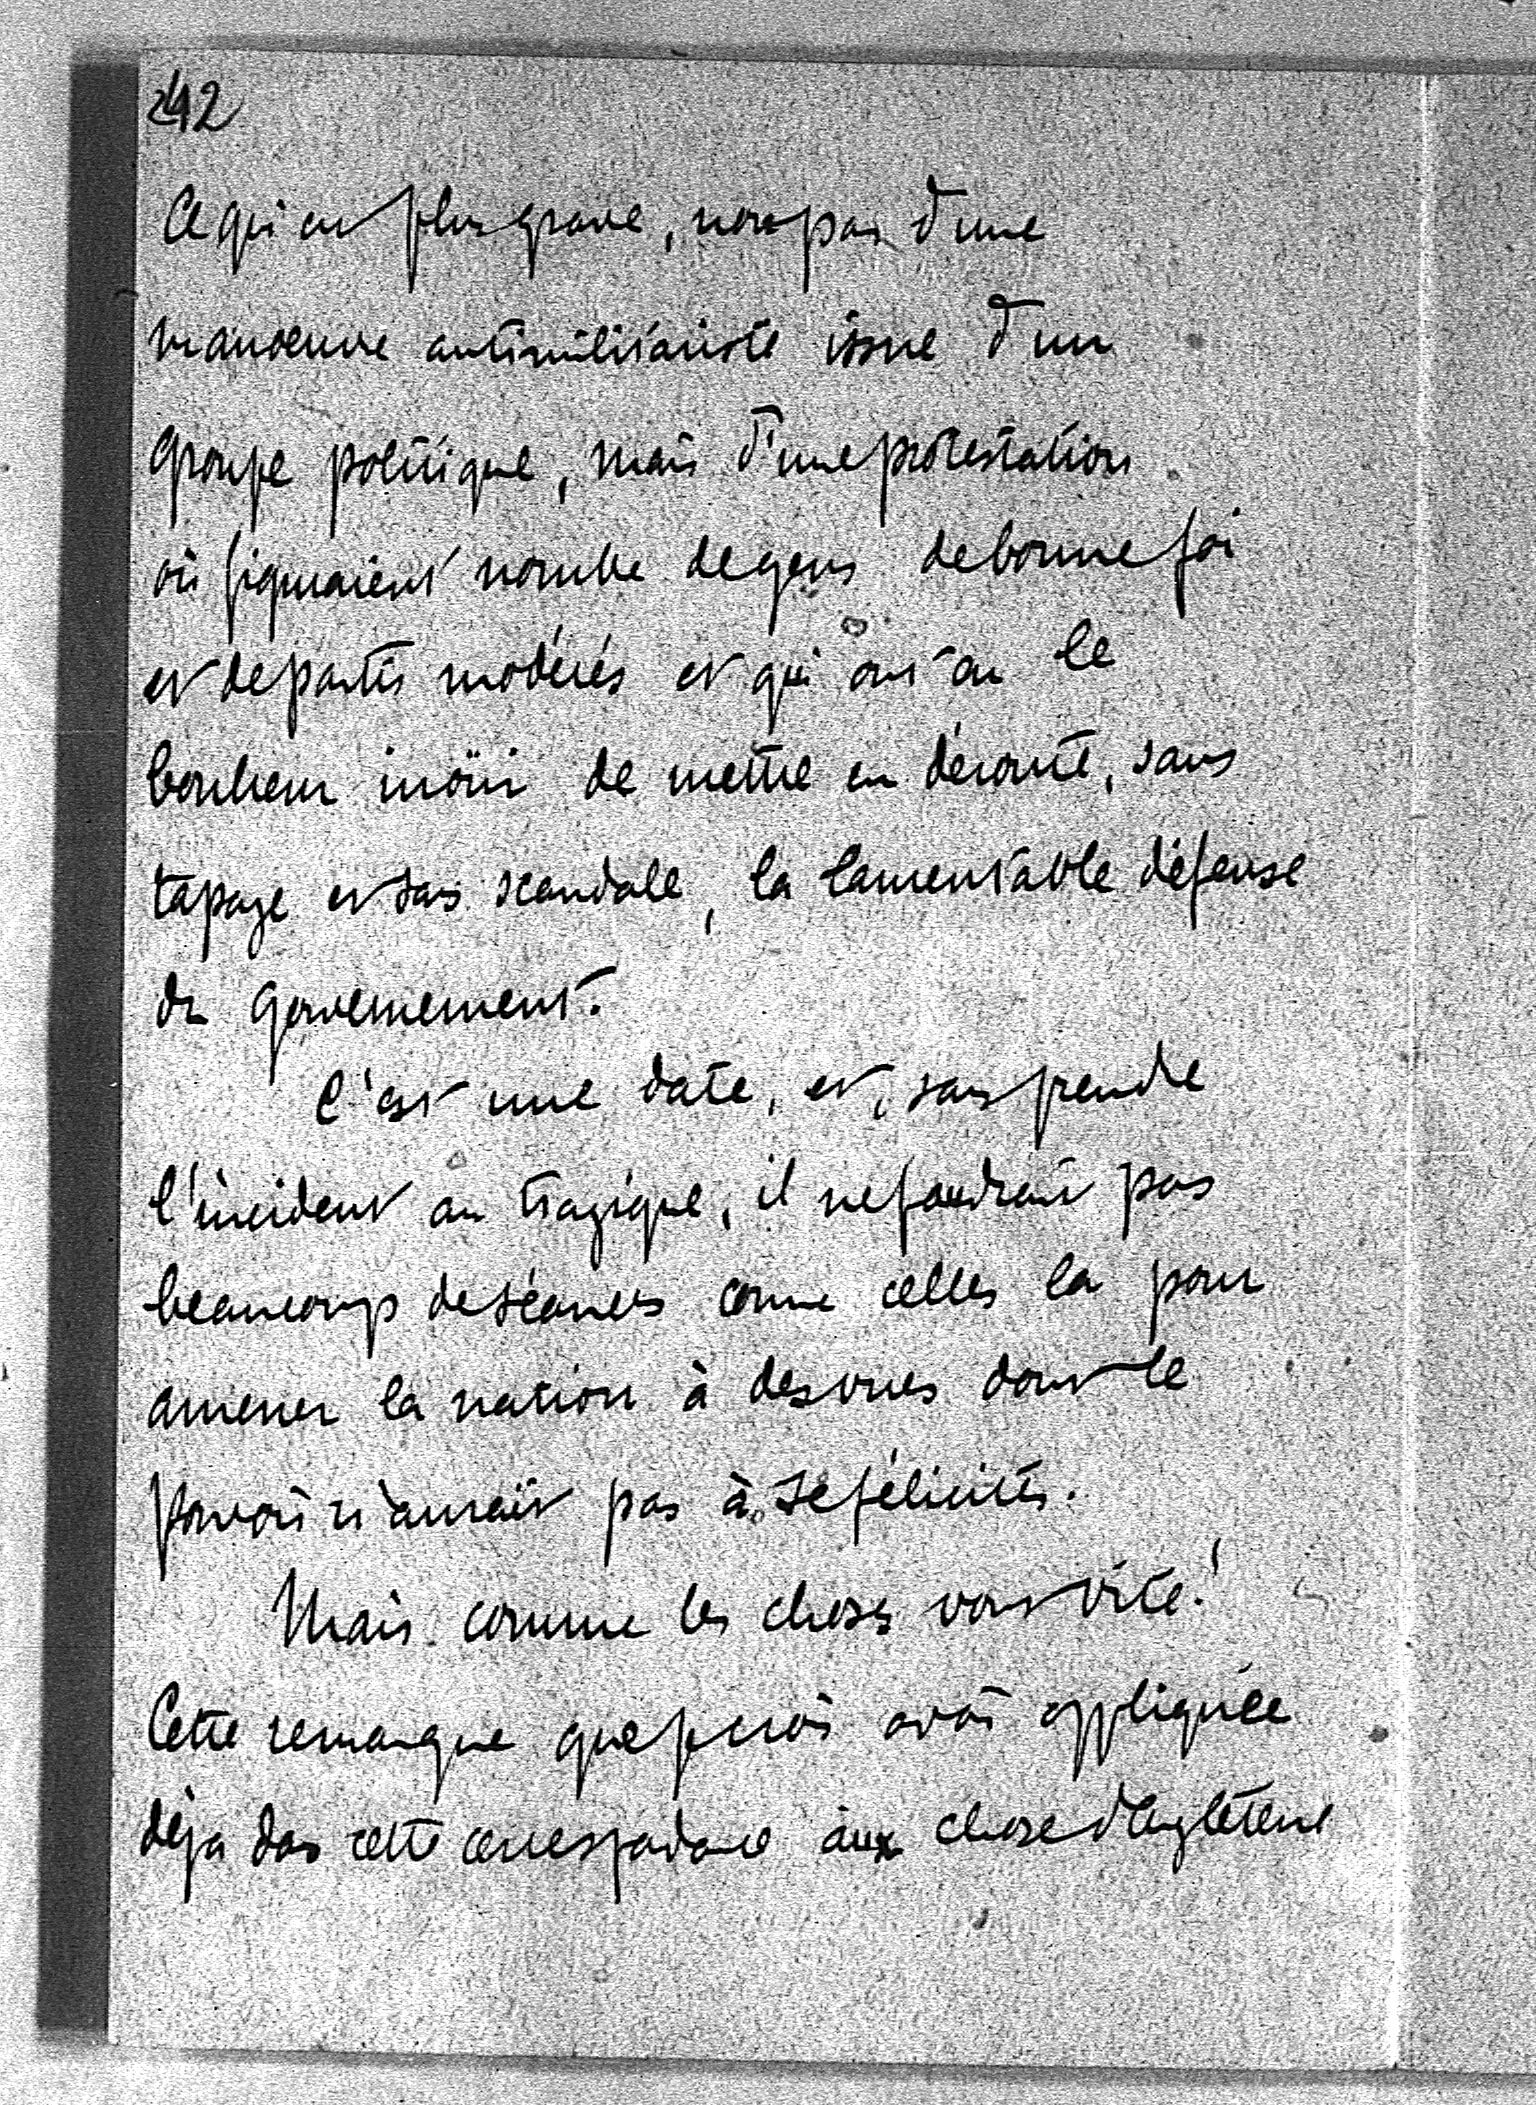 242
Ce qui est plus grave, non pas d'une
manoeuvre antimilitariste issue d'un
groupe politique, mais d'une protestation
où figuraient nombre de gens de bonne foi
et de partis modérés et qui ont eu le
bonheur inouï de mettre en déroute, sans
tapage et sans scandale, la lamentable défense
du gouvernement.
C'est une date, et, sans prendre
l'incident au tragique, il ne faudrait pas
beaucoup de séances comme celles la pour
amener la nation à des vues dont le
pouvoir n'aurait pas à se féliciter.
Mais comme les choses vont vite!
Cette remarque que je crois avoir appliquée
déjà dans cette correspondance aux choses d'Angleterre